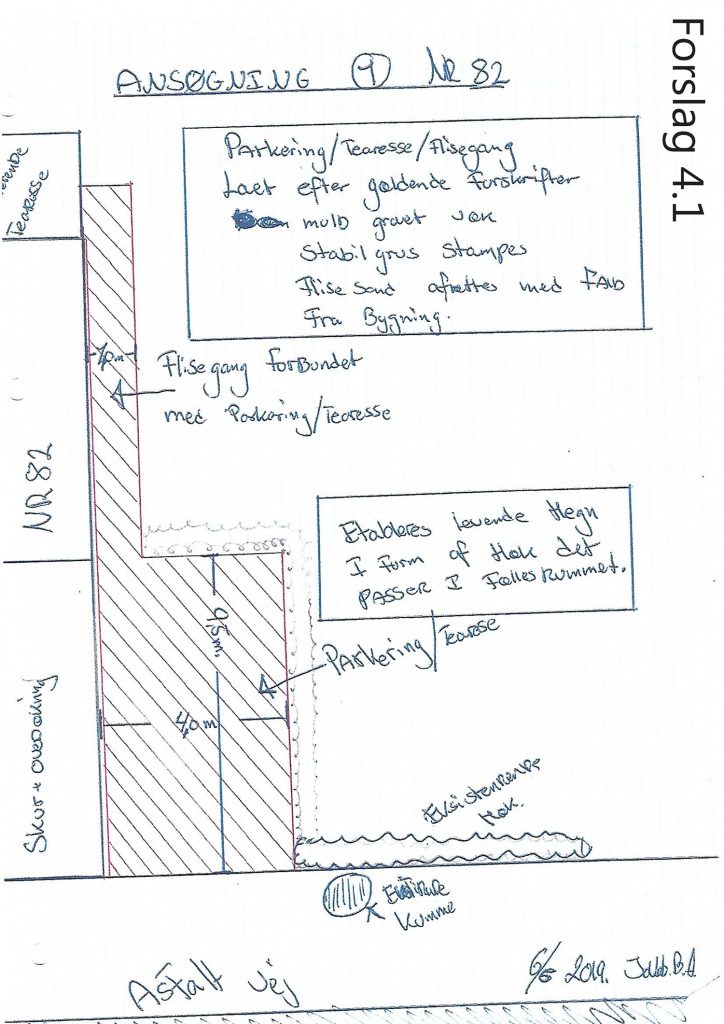 Forslag 4.1
ANSØGNING ① NR 82
Parkering/Tearesse/Flisegang
Laet efter gældende Forskrifter
muld gravet væk
Stabil grus Stampes
Flise sand afrettes med FALD
Fra Bygning.
Tearasse
1,0m
Flisegang forBundet
med Parkering/Tearesse
NR 82
Etableres levende Hegn
I Form af Hæk det
PASSER I FællesRummet.
9,5m.
Parkering/Tearesse
4,0m
Skur + overdækning
Eksisterende
Hæk.
Kumme
Asfalt vej
6/5 2019.